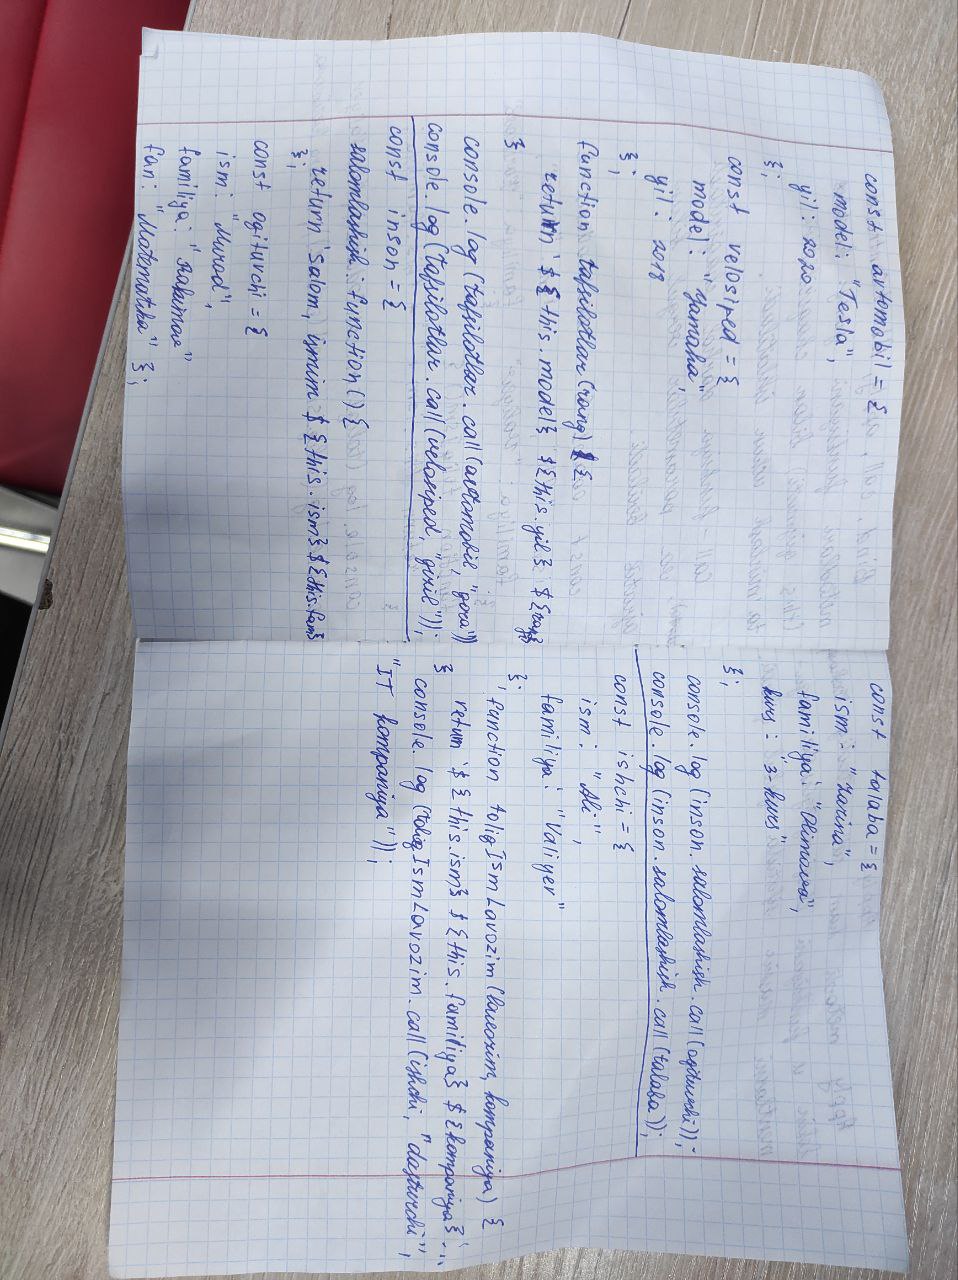 const avtomobil = {
model: "Tesla",
yil: 2020
};
const velosiped = {
model: "Yamaha"
yil: 2018
};
function tafsilotlar (rang) {
return `${this.model} ${this.yil} ${rang}
}
console.log (tafsilotlar.call (avtomobil, "qora"))
console.log (tafsilotlar.call (velosiped, "qizil"));
const inson = {
salomlashish: function () {
return `Salom, ismim ${this.ism} ${this.fam}
};
const oqituvchi = {
ism: "Murod",
familiya: "Rahimov"
fan: "Matematika" };
const talaba = {
ism: "Karina",
familiya: "Olimova",
kurs: "3-kurs"
};
console.log (inson.salomlashish.call (oqituvchi));
console.log (inson.salomlashish.call (talaba));
const ishchi = {
ism: "Ali",
familiya: "Valiyev"
};
function toliqIsmLavozim (lavozim, kompaniya) {
return `${this.ism} ${this.familiya} ${kompaniya}`;
}
console.log (toliqIsmLavozim.call (ishchi, "dasturchi",
"IT kompaniya"));